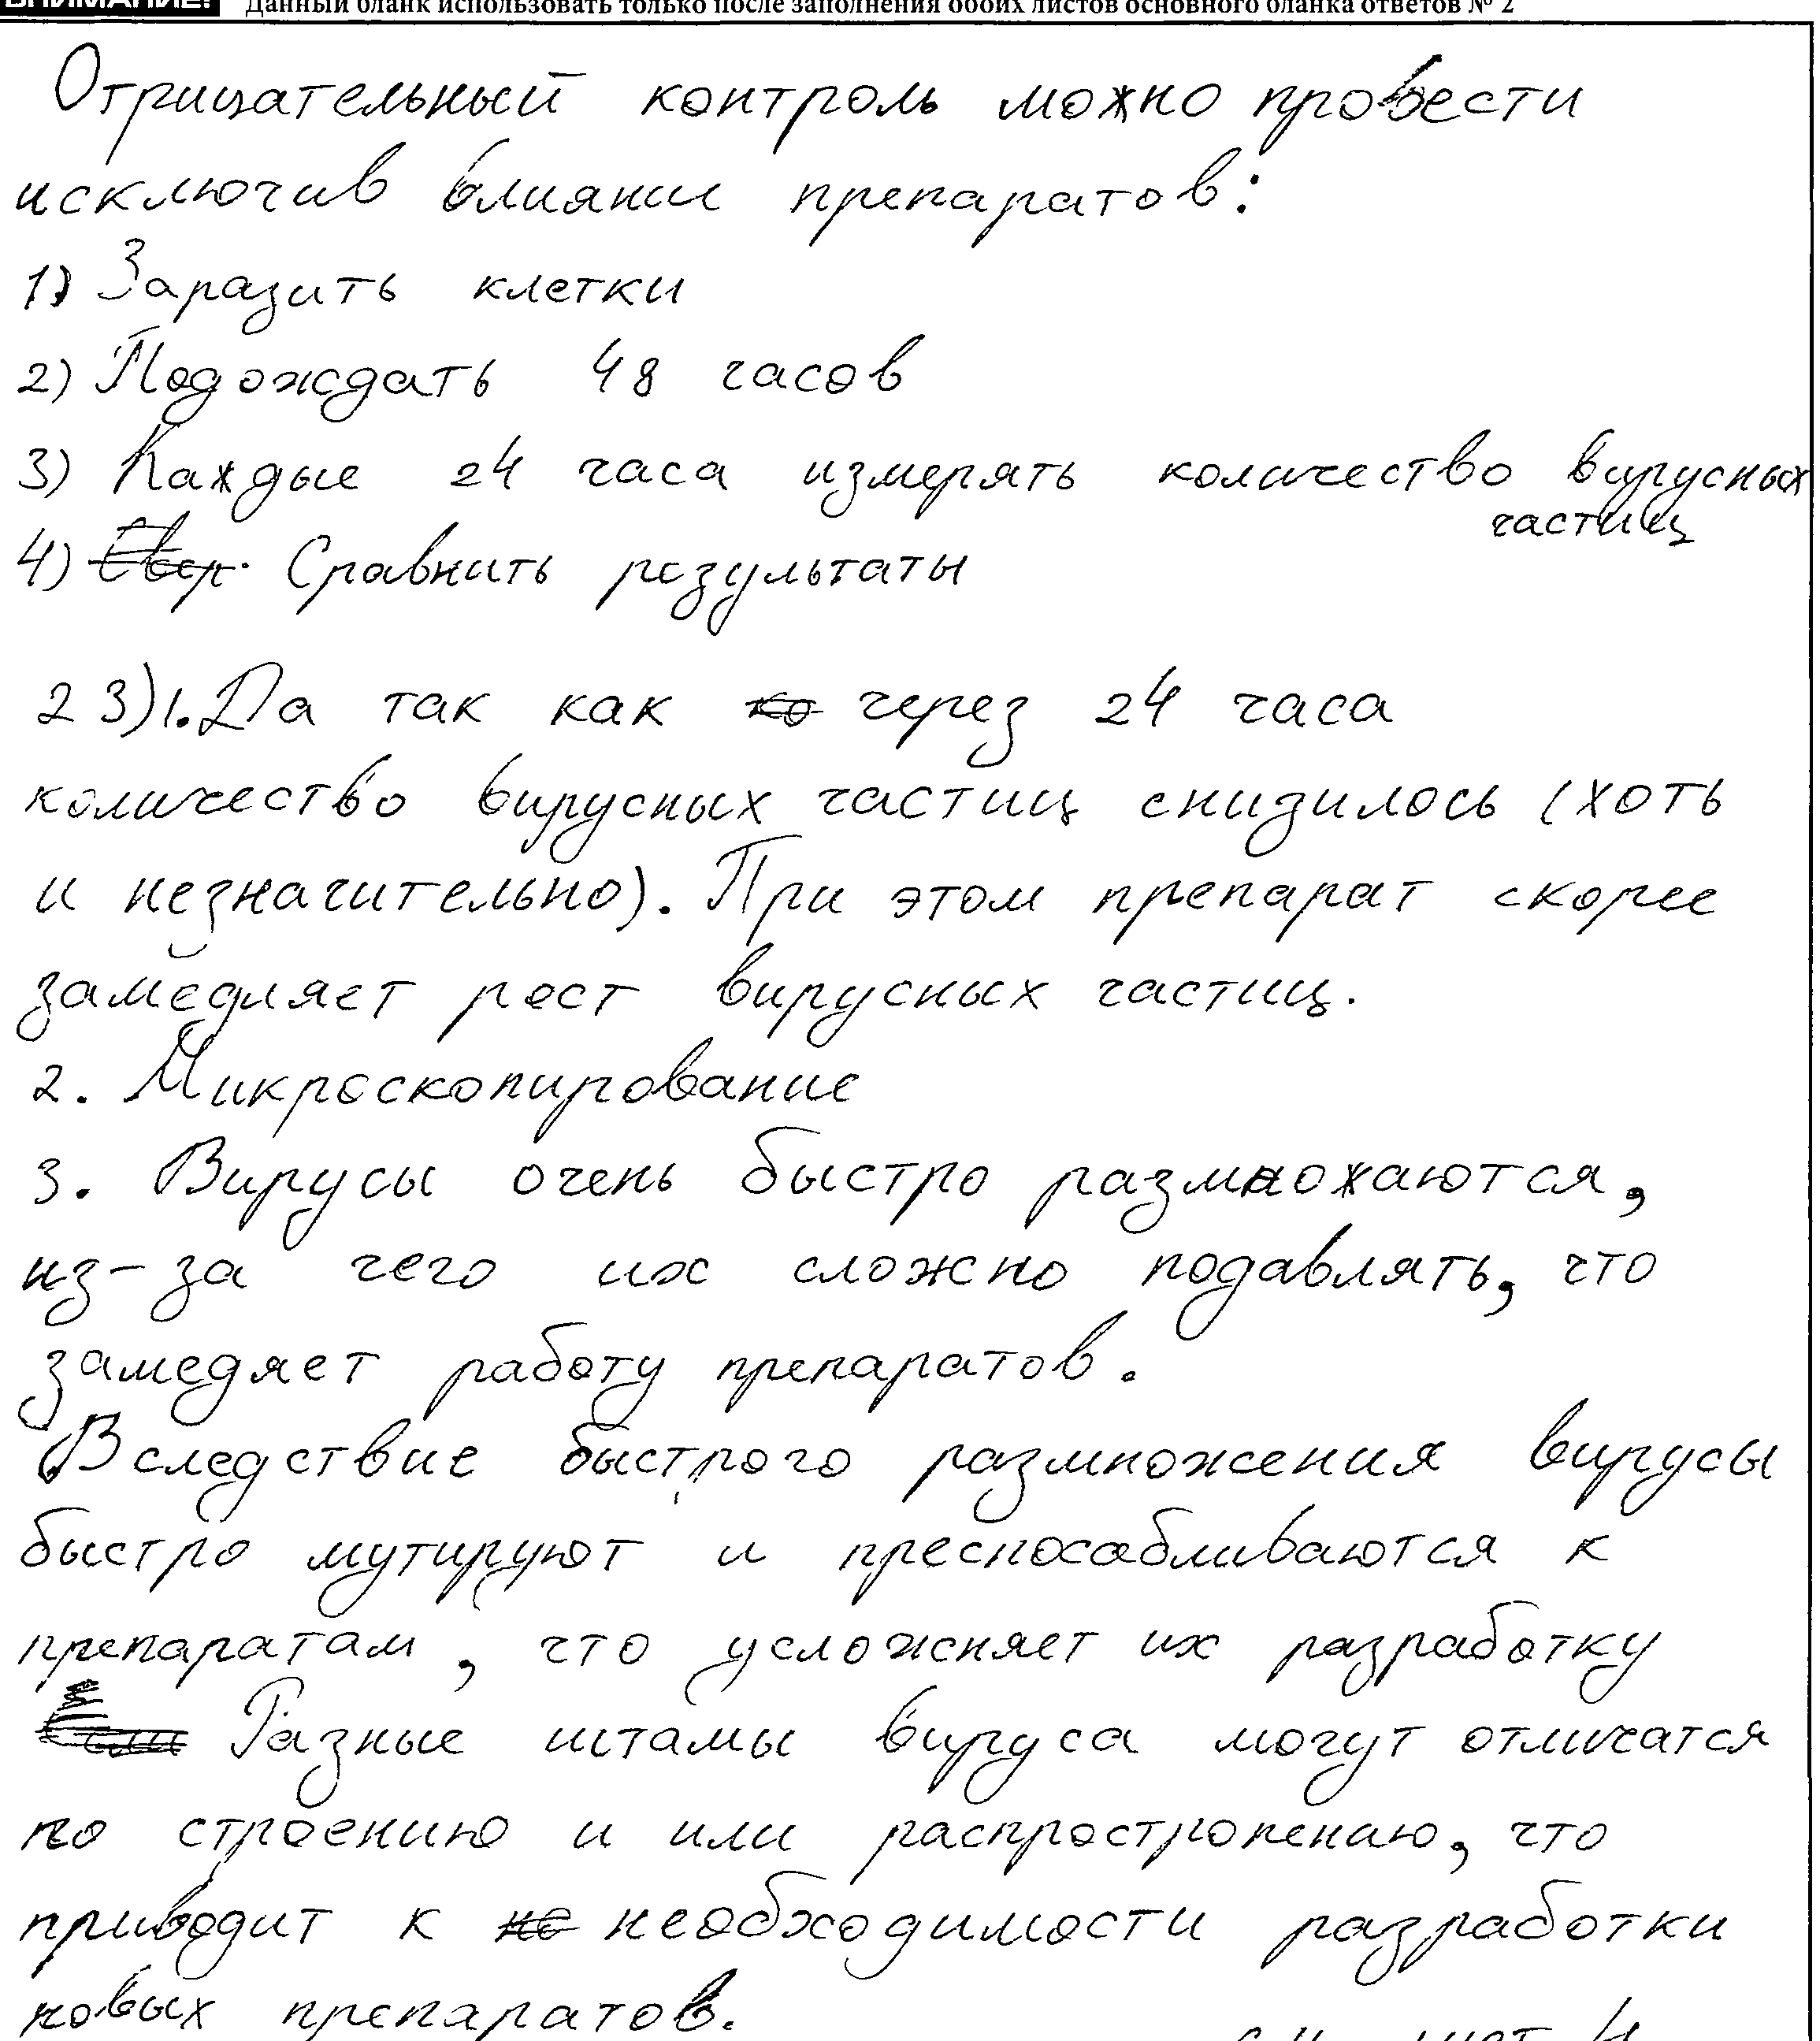 ВНИМАНИЕ! Данный бланк использовать только после заполнения обоих листов основного бланка ответов № 2
Отрицательный контроль можно провести
исключив влияни препаратов:
1) Заразить клетки
2) Подождать 48 часов
3) Каждые 24 часа измерять количество вирусных
частиц
4) Сравнить результаты
23) 1. Да так как через 24 часа
количество вирусных частиц снизилось (хоть
и незначительно). При этом препарат скорее
замедляет рост вирусных частиц.
2. Микроскопирование
3. Вирусы очень быстро размножаются,
из-за чего их сложно подавлять, что
замедяет работу препаратов.
Вследствие быстрого размножения вирусы
быстро мутируют и преспосабливаются к
препаратам, что усложняет их разработку
Разные штамы вируса могут отличатся
по строению и или распростронению, что
приводит к необходимости разработки
новых препаратов.